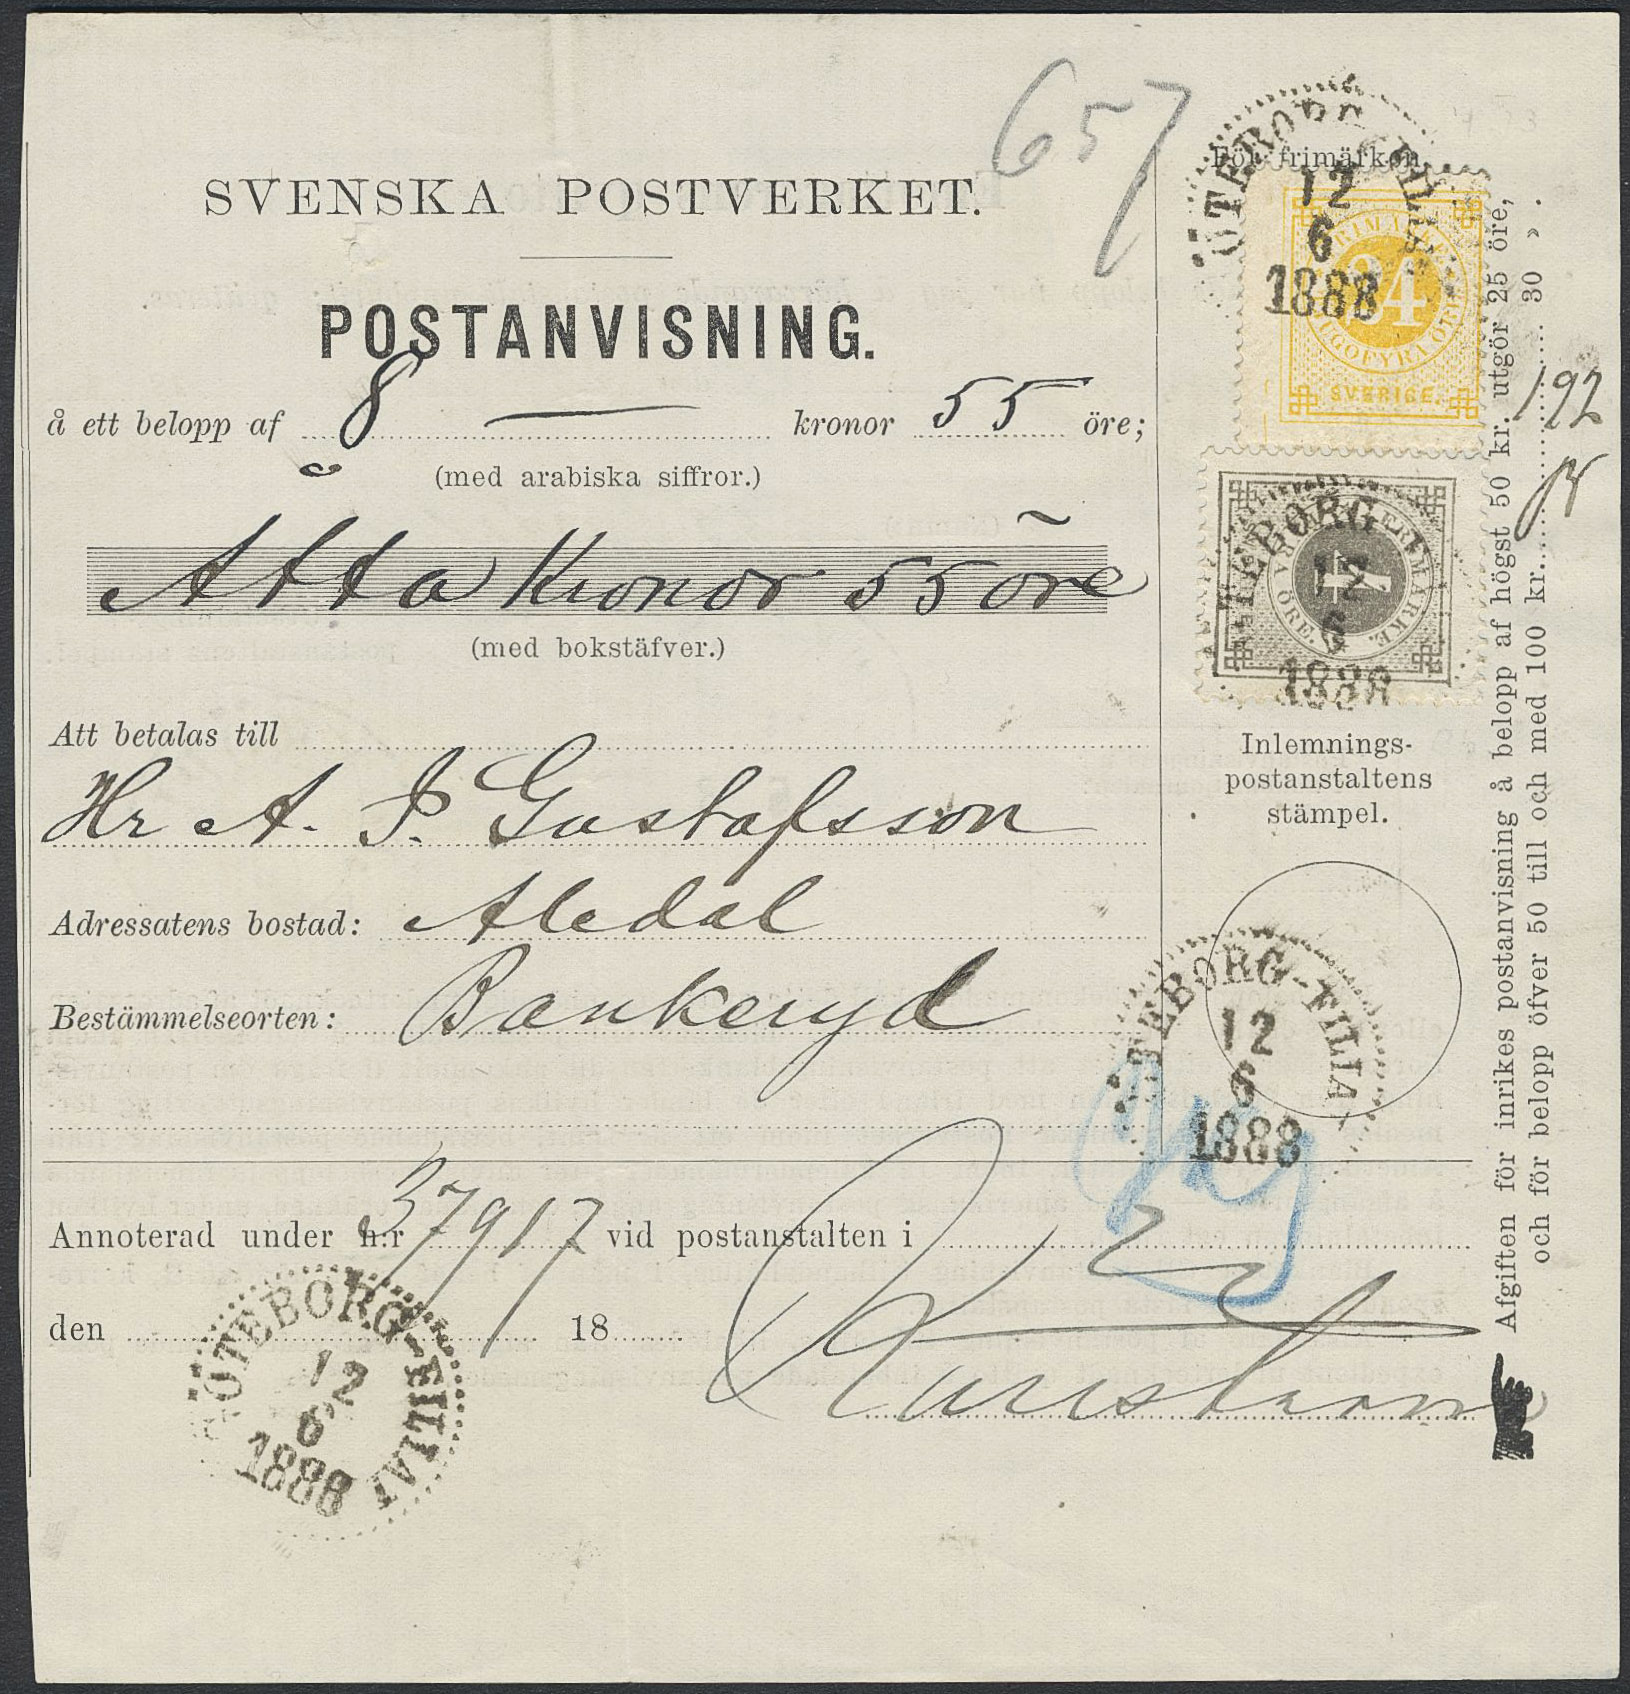 657
SVENSKA POSTVERKET.
POSTANVISNING.
å ett belopp af 8 — kronor 55 öre;
(med arabiska siffror.)
Åtta Kronor 55 öre
(med bokstäfver.)
Att betalas till
Hr A. P. Gustafsson
Adressatens bostad: Aledal
Bestämmelseorten: Bankeryd
Annoterad under n:r 37917 vid postanstalten i
den 18
GÖTEBORG-FILIAL
12
6
1888
För frimärken.
ÖTEBORG FIL
12
6
1888
FRIMÄRKE
24
TJUGOFYRA ÖRE
SVERIGE.
SVERIGE FRIMÄRKE. FYRA ÖRE.
4
TEBORG
12
6
1888
Inlemnings-
postanstaltens
stämpel.
TEBORG-FILIAL
12
6
1888
Afgiften för inrikes postanvisning å belopp af högst 50 kr. utgör 25 öre,
och för belopp öfver 50 till och med 100 kr. 30 » .
192